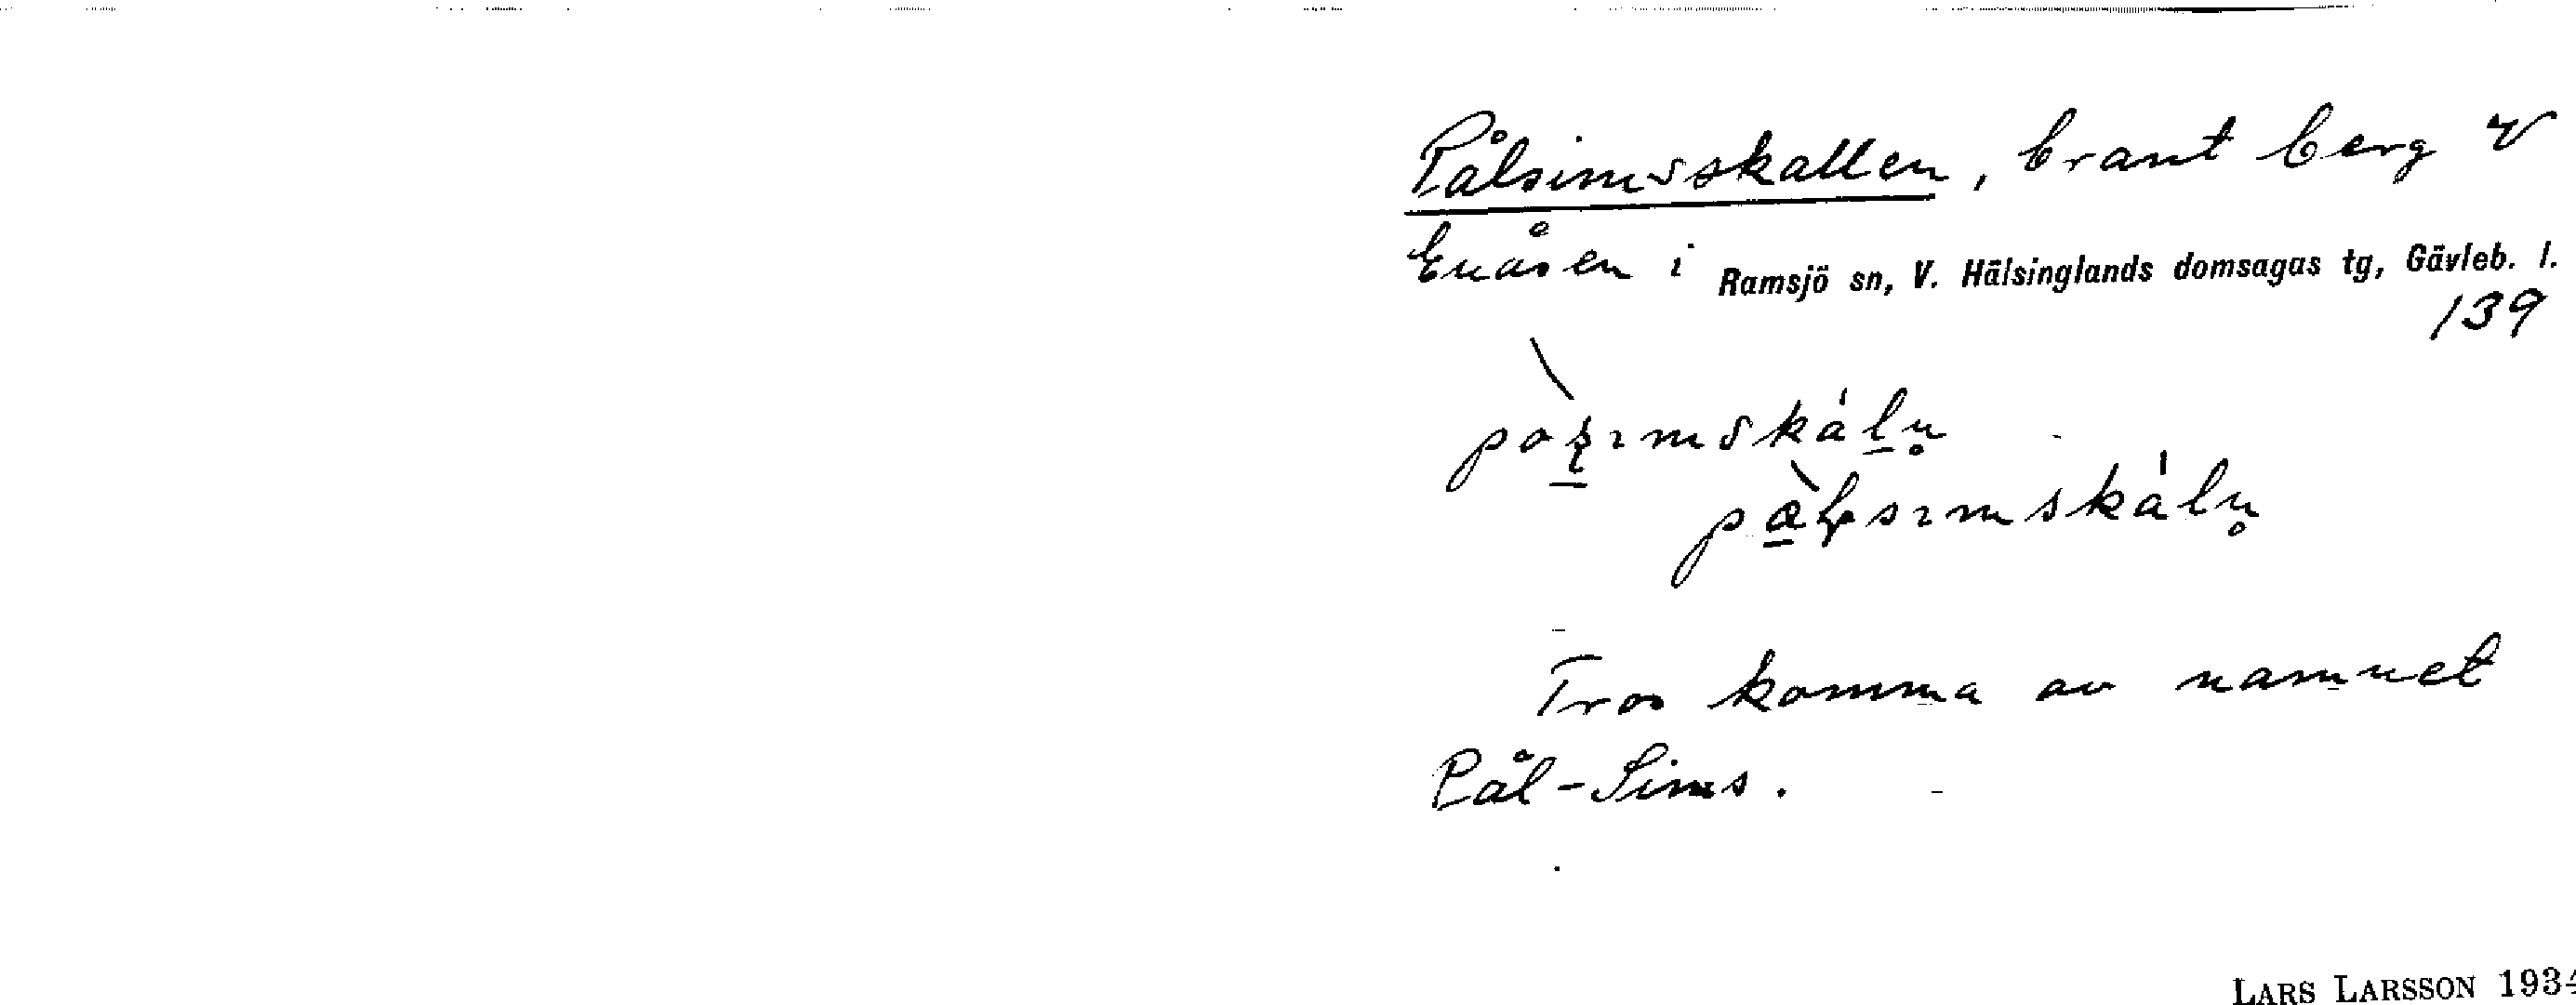 Pålsimsskallen, brant berg V
Enåsen i Ramsjö sn, V. Hälsinglands domsagas tg, Gävleb. l.
139
Tros komma av namnet
Pål-Sims.
LARS LARSSON 1934